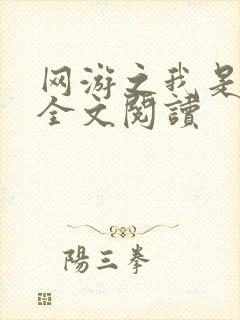 网游之我是
全文閱讀
陽三拳